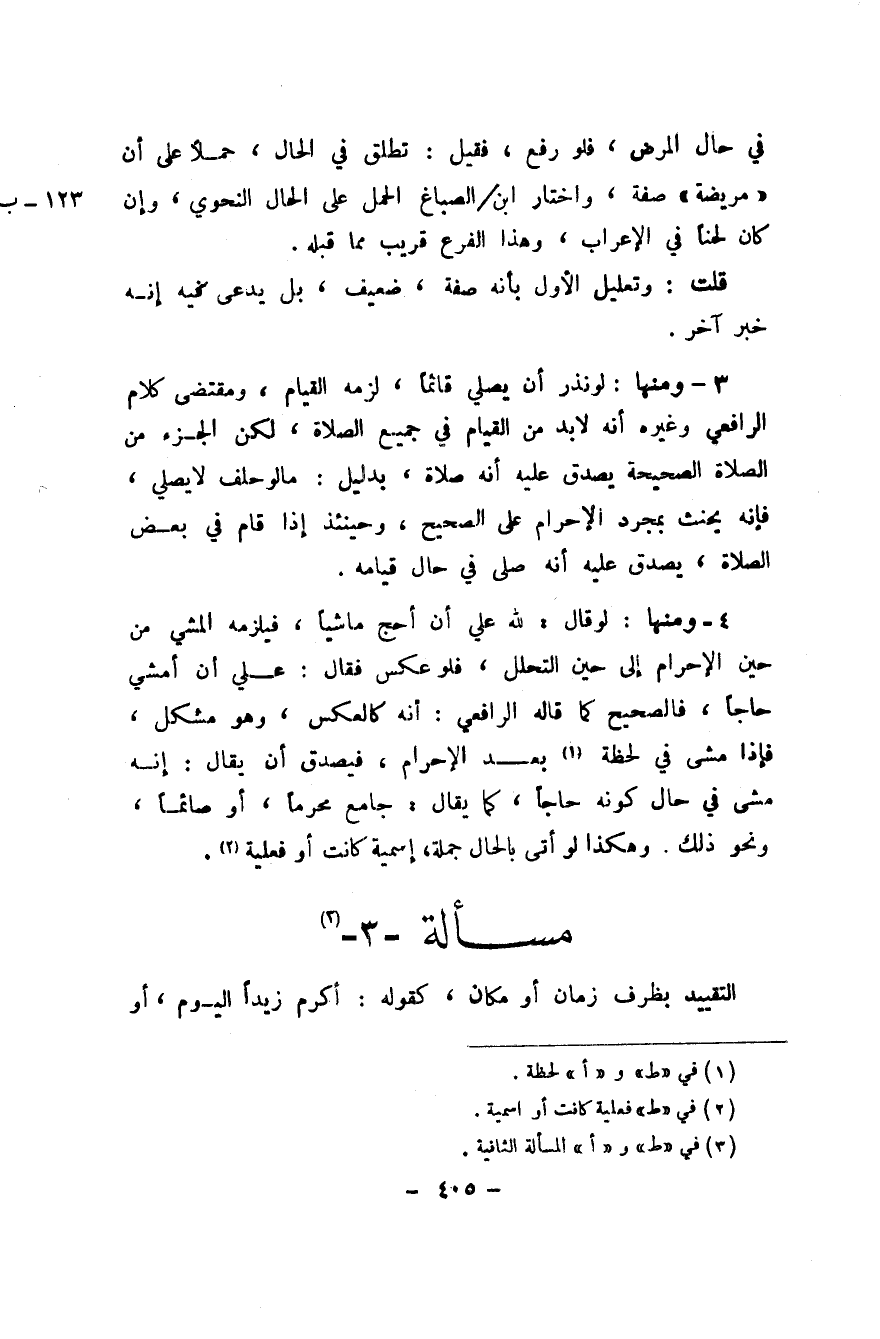 في حال المرض ، فلو رفع ، فقيل : تطلق في الحال ، حمـلاً على أن
« مريضة » صفة ، واختار ابن/الصباغ الحمل على الحال النحوي ، وإن
١٢٣ - ب
كان لحناً في الإعراب ، وهذا الفرع قريب مما قبله .
قلت : وتعليل الأول بأنه صفة ، ضعيف ، بل يدعى فيه إنـه
خبر آخر .
٣ - ومنها : لونذر أن يصلي قائماً ، لزمه القيام ، ومقتضى كلام
الرافعي وغيره أنه لابد من القيام في جميع الصلاة ، لكن الجـزء من
الصلاة الصحيحة يصدق عليه أنه صلاة ، بدليل : مالوحلف لايصلي ،
فإنه يحنث بمجرد الإحرام على الصحيح ، وحينئذ إذا قام في بعـض
الصلاة ، يصدق عليه أنه صلى في حال قيامه .
٤ - ومنها : لوقال : لله علي أن أحج ماشياً ، فيلزمه المشي من
حين الإحرام إلى حين التحلل ، فلو عكس فقال : عـلي أن أمشي
حاجاً ، فالصحيح كما قاله الرافعي : أنه كالعكس ، وهو مشكل ،
فإذا مشى في لحظة (١) بعـد الإحرام ، فيصدق أن يقال : إنـه
مشى في حال كونه حاجاً ، كما يقال : جامع محرماً ، أو صائمـاً ،
ونحو ذلك . وهكذا لو أتى بالحال جملة، إسمية كانت أو فعلية (٢) .
مسـألة -٣- (٣)
التقييد بظرف زمان أو مكان ، كقوله : أكرم زيداً اليـوم ، أو
(١) في «ط» و « أ » لحظة .
(٢) في «ط» فعلية كانت أو اسمية .
(٣) في «ط» و « أ » المسألة الثانية .
- ٤٠٥ -